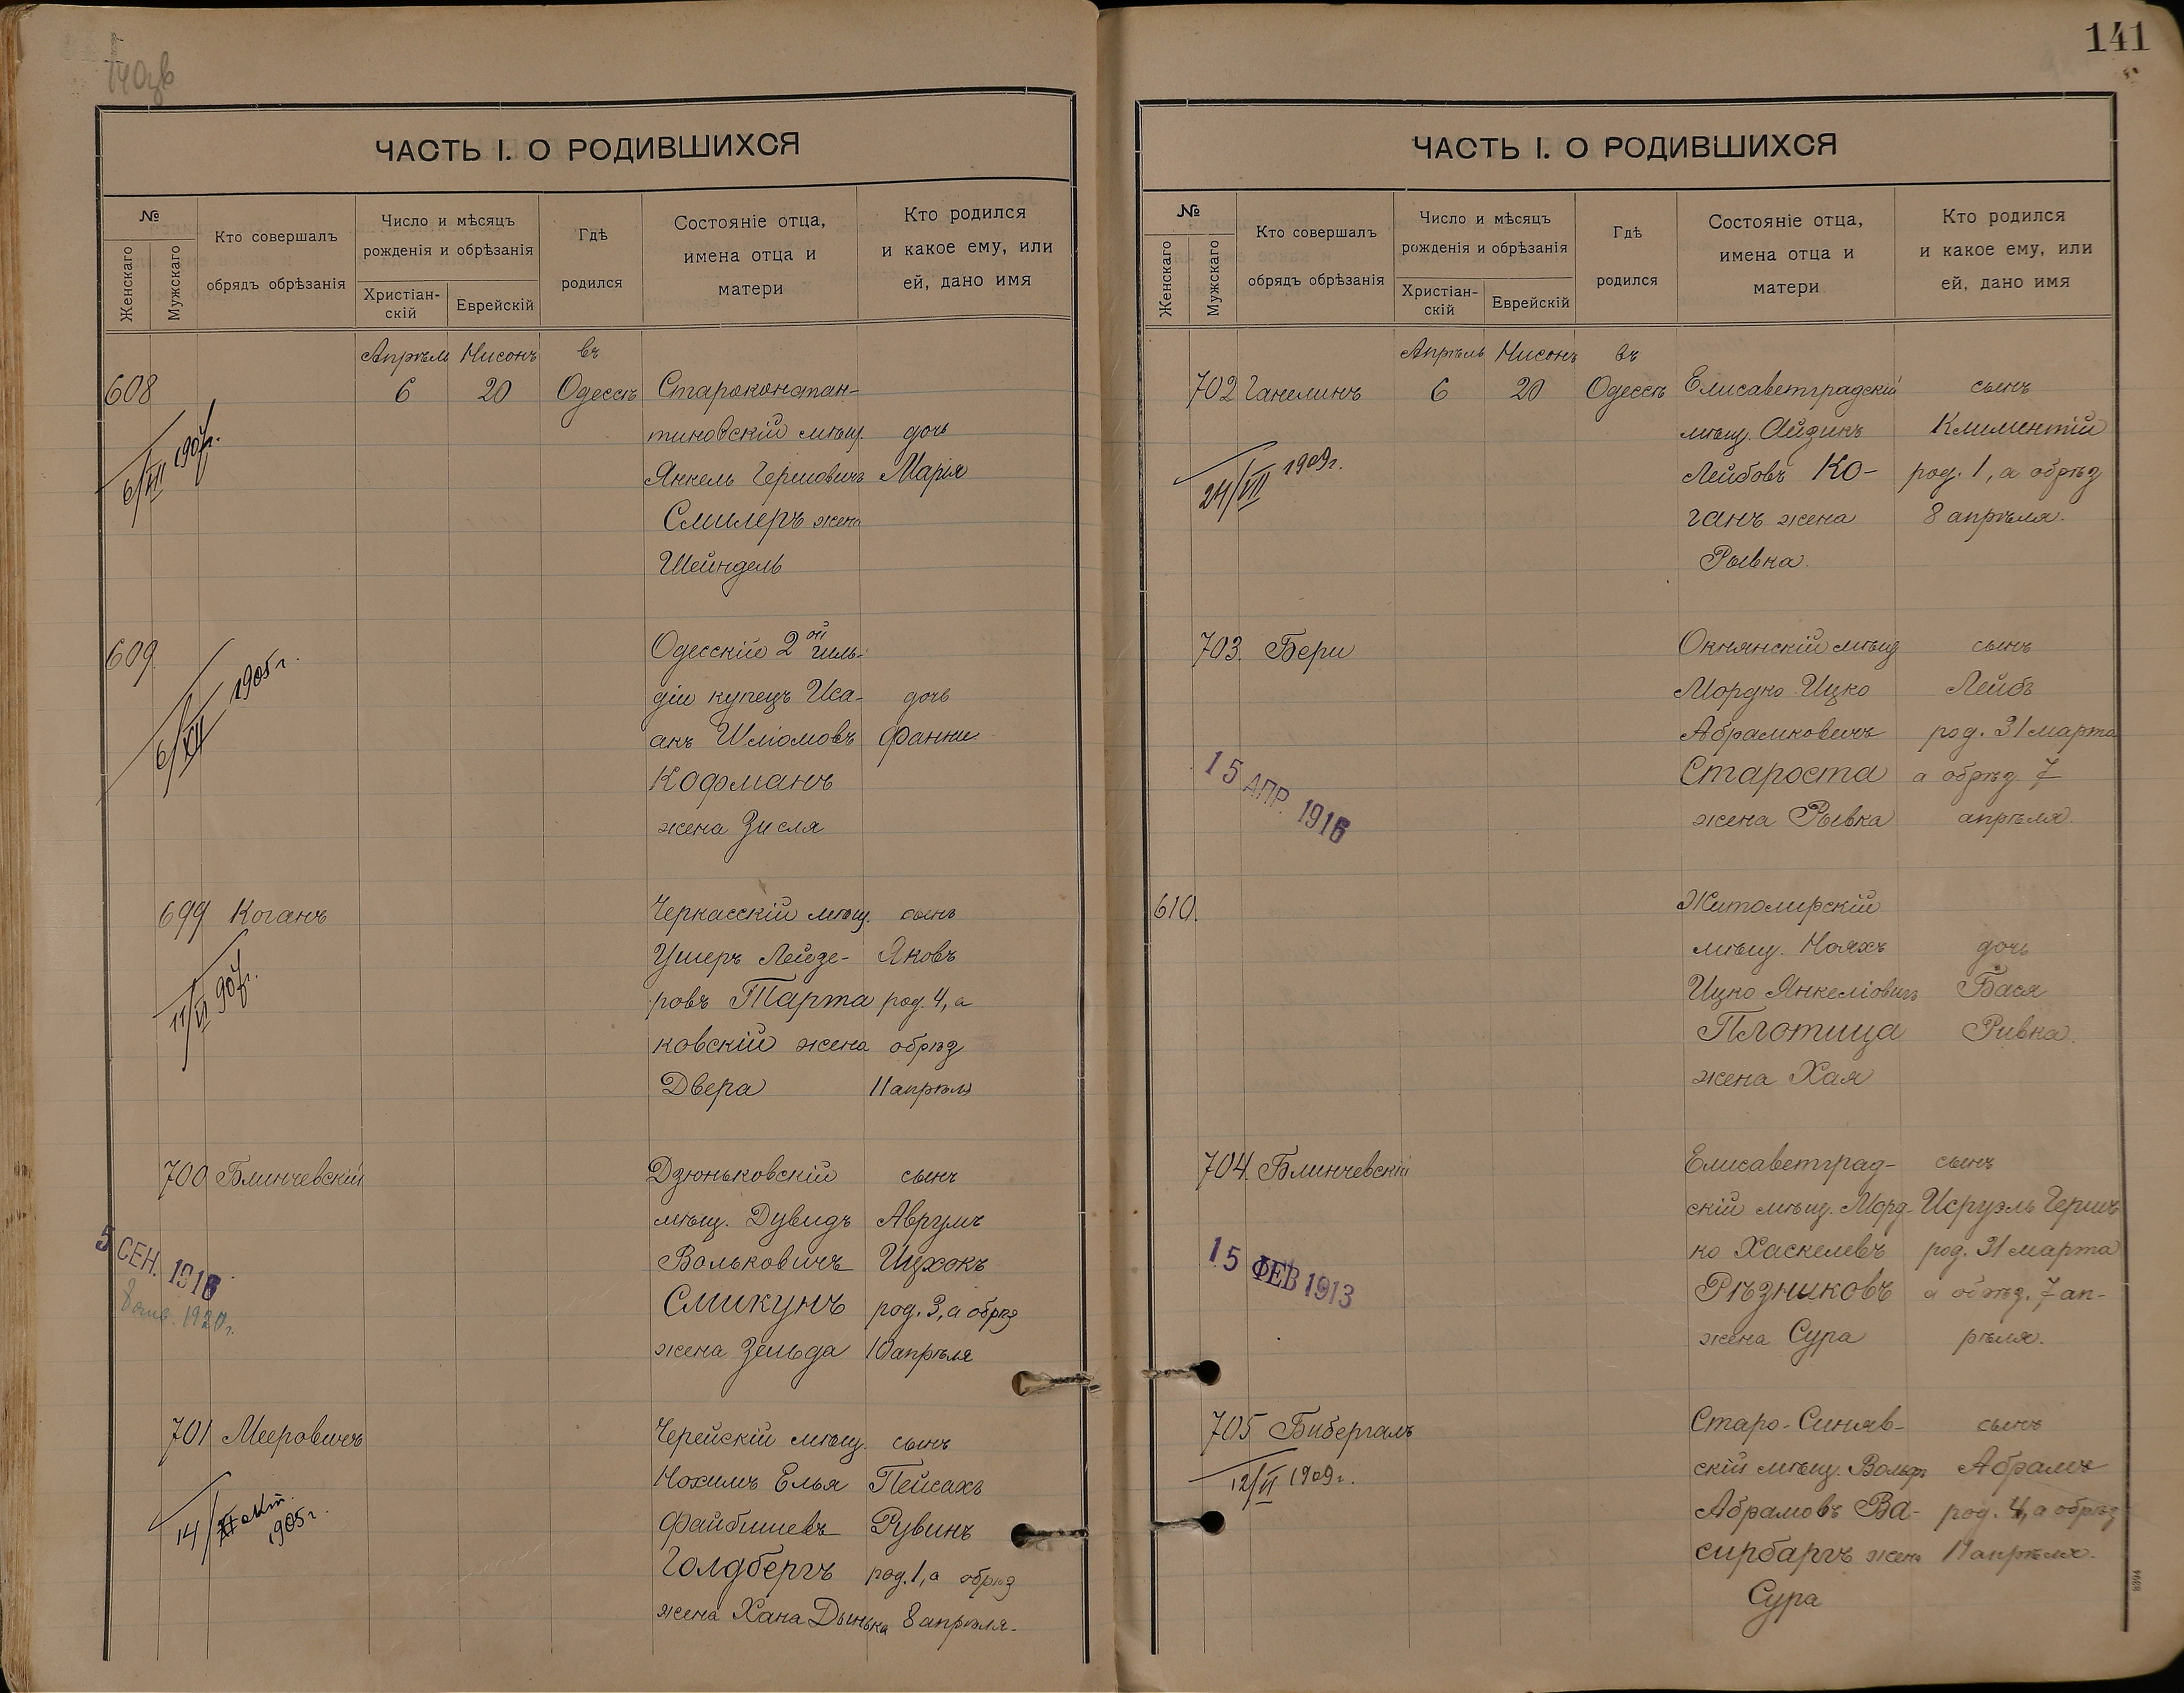 140об
ЧАСТЬ I. О РОДИВШИХСЯ
№
Женскаго
Мужскаго
Кто совершалъ
обрядъ обрѣзанія
Число и мѣсяцъ
рожденія и обрѣзанія
Христіан-
скій
Еврейскій
Гдѣ
родился
Состояніе отца,
имена отца и
матери
Кто родился
и какое ему, или
ей, дано имя
Апрѣль Нисонъ въ
608 6 20 Одессѣ Староконстан-
тиновскій мѣщ. дочь
Янкель Гершовичъ Марія
Смилеръ жена
Шейндель
6/XII 1907г.
609 Одесскій 2ой гиль-
діи купецъ Иса- дочь
акъ Шліомовъ Фанни
Кофманъ
жена Зисля
6/XII 1905 г.
699 Коганъ Черкасскій мѣщ. сынъ
Ушеръ Лейзе- Яковъ
ровъ Тарта род. 4, а
ковскій жена обрѣз
Двера 11 апрѣля
11/VI 907г.
700 Блинчевскій Дзюньковскій сынъ
мѣщ. Дувидъ Аврумъ
Вольковичъ Ицхокъ
Смикунъ род. 3, а обрѣз
жена Зельда 10 апрѣля
5 СЕН. 1916
1920 г.
701 Мееровичъ Черейскій мѣщ. сынъ
Нохимъ Елья Пейсахъ
Файбишевъ Рувинъ
Голдбергъ род. 1, а обрѣз
жена Хана Дынька 8 апрѣля.
14/XI 1905 г.
141
ЧАСТЬ I. О РОДИВШИХСЯ
№
Женскаго
Мужскаго
Кто совершалъ
обрядъ обрѣзанія
Число и мѣсяцъ
рожденія и обрѣзанія
Христіан-
скій
Еврейскій
Гдѣ
родился
Состояніе отца,
имена отца и
матери
Кто родился
и какое ему, или
ей, дано имя
Апрѣль Нисонъ въ
702 Ганелинъ 6 20 Одессѣ Елисаветградскій сынъ
мѣщ. Айзикъ Климентій
Лейбовъ Ко- род. 1, а обрѣз
ганъ жена 8 апрѣля.
Рывка.
24/VII 1909 г.
703. Бери Окнянскій мѣщ сынъ
Мордко Ицко Лейбъ
Абрамковичъ род. 31 марта
Староста а обрѣз. 7
жена Рывка апрѣля.
15 АПР. 1916
610. Житомирскій
мѣщ. Нояхъ дочь
Ицко Янкеліовичъ Бася
Плотица Ривка.
жена Хая
704. Блинчевскій Елисаветград- сынъ
скій мѣщ. Морд- Исруэль Гершъ
ко Хаскелевъ род. 31 марта
Рѣзниковъ а обрѣз. 7 ап-
жена Сура рѣля.
15 ФЕВ 1913
705 Бибергалъ Старо-Синяв- сынъ
скій мѣщ. Вольфъ Абрамъ
Абрамовъ Ва- род. 4, а обрѣз
сирбаргъ жена 11 апрѣля.
Сура
12/VI 1909 г.